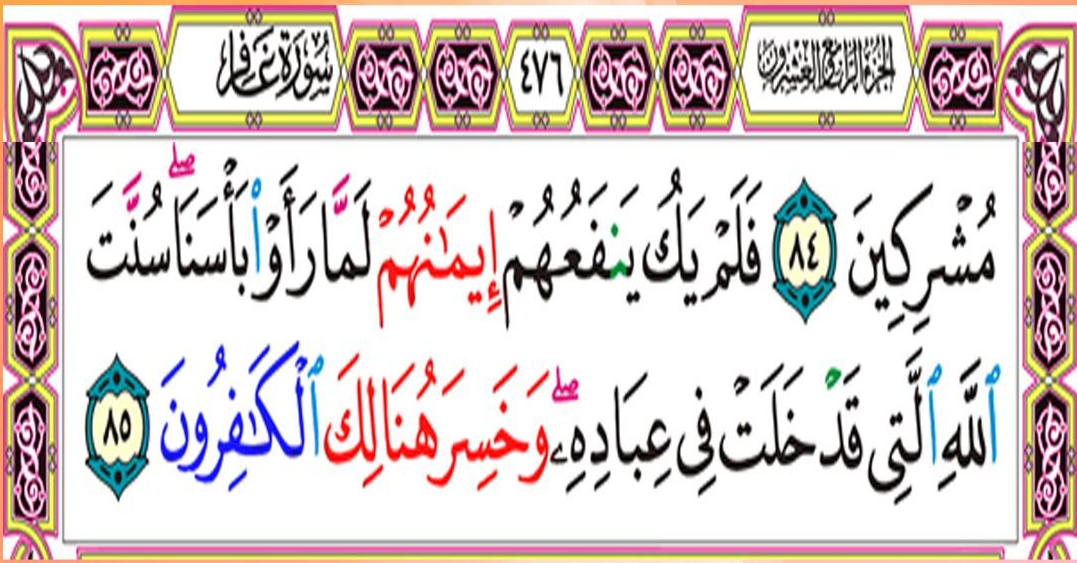 الجزء الرابع والعشرون ٤٧٦ سورة غافر
مُشْرِكِينَ ٨٤ فَلَمْ يَكُ يَنفَعُهُمْ إِيمَٰنُهُمْ لَمَّا رَأَوْا۟ بَأْسَنَا ۖ سُنَّتَ
ٱللَّهِ ٱلَّتِى قَدْ خَلَتْ فِى عِبَادِهِۦ ۖ وَخَسِرَ هُنَالِكَ ٱلْكَٰفِرُونَ ٨٥